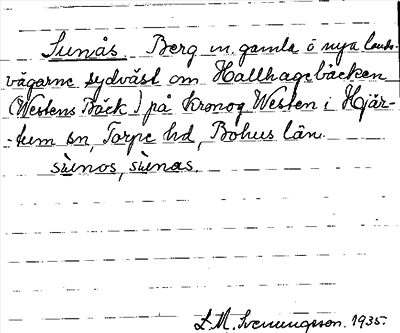 Sunås Berg m. gamla o nya lands-
vägarne sydväst om Hallhagebäcken
(Westens Bäck) på Kronog Westen i Hjär-
-tum sn, Torpe hd, Bohus län.
sùenos, sùenas.
L.M. Svenungsson. 1935.